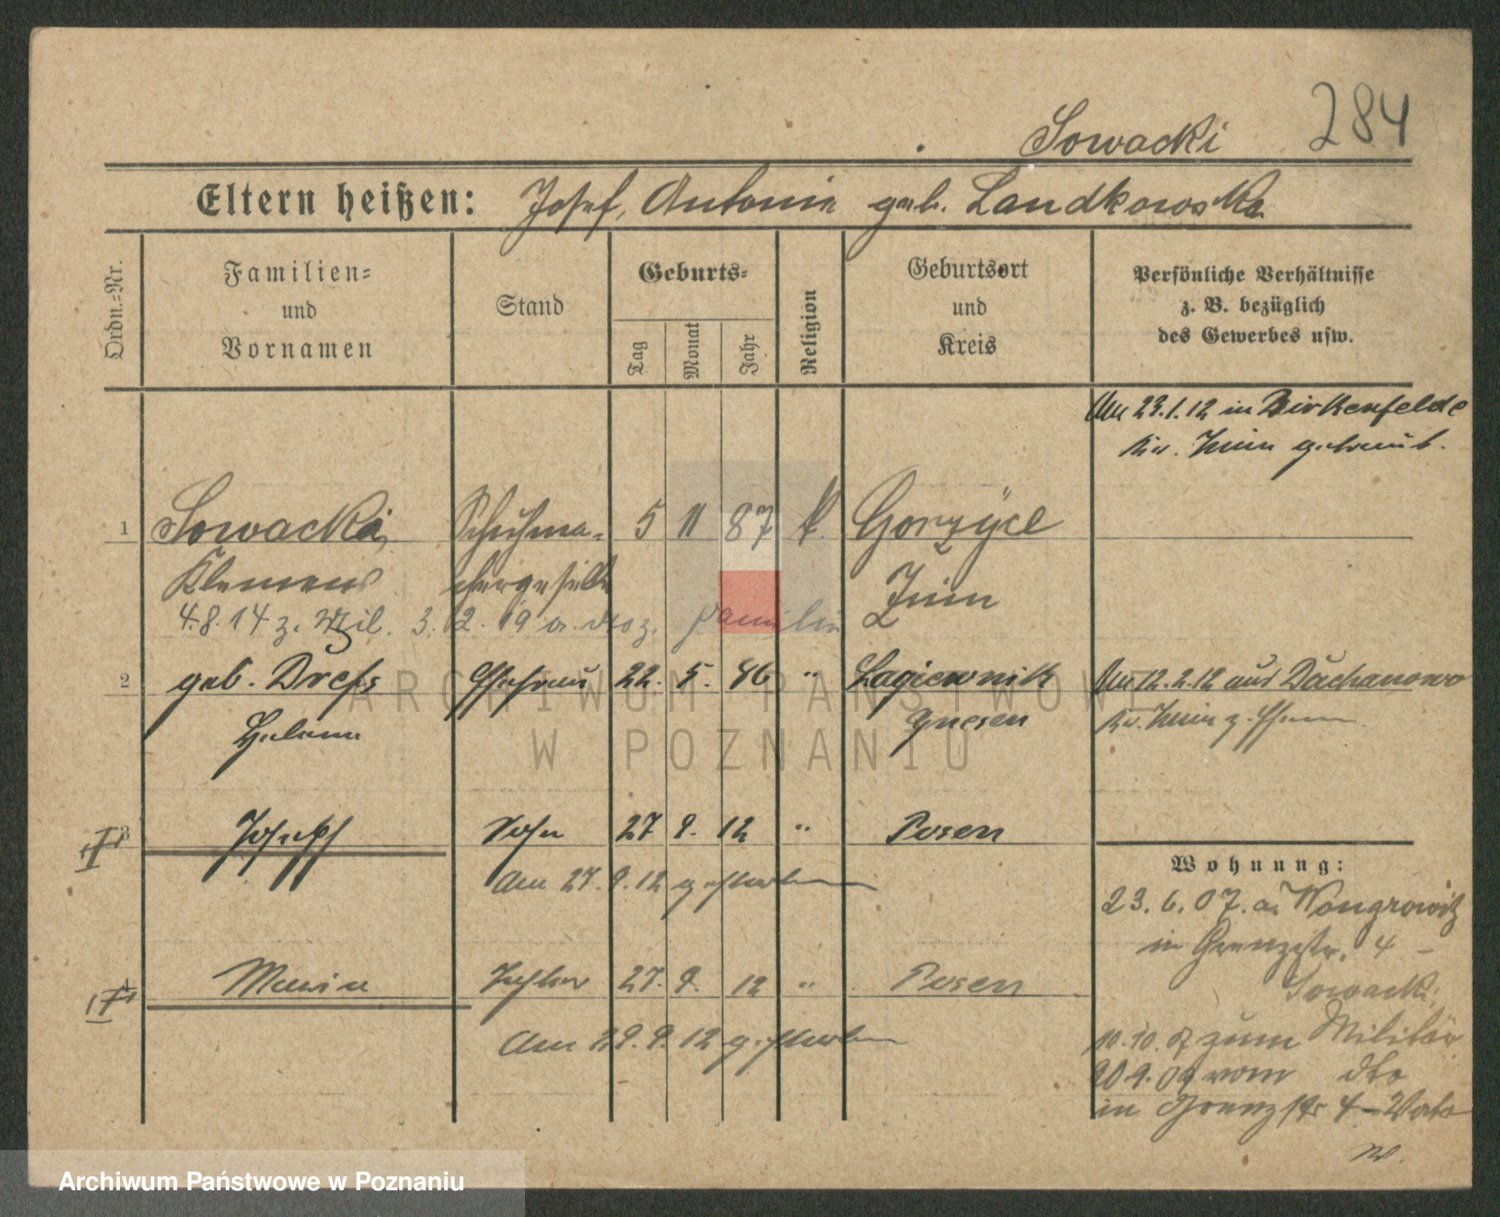 284
Sowacki
Eltern heißen: Josef, Antonie geb. Landkowska
Ordn.=Nr.
Familien=
und
Vornamen
Stand
Geburts=
Tag
Monat
Jahr
Religion
Geburtsort
und
Kreis
Persönliche Verhältnisse
z. B. bezüglich
des Gewerbes usw.
Am 23.1.12 in Birkenfelde
Kr. Znin getraut.
1 Sowacki, Schuhma- 5 11 87 k. Gorzyce
Klemens chergeselle Znin
4.8.14 z. Mil. 3.12.19 Familie
2 geb. Drefs Ehefrau 22. 5. 86 " Lagiewnik Am 12.2.12 aus Dochanowo
Helene Gnesen Kr. Znin z. Ehem
3 Joseph Sohn 27 9. 12 " Posen
Am 27.9.12 gestorben
4 Maria Tochter 27. 9. 12 " Posen
Am 29.9.12 gestorben
Wohnung:
23.6.07. a. Wongrowitz
in Grenzstr. 4 -
Sowacki
10.10. zum Militär
20.9.09 vom dto
in Grenzstr 4 - Vater
ARCHIWUM PAŃSTWOWE
W POZNANIU
Archiwum Państwowe w Poznaniu